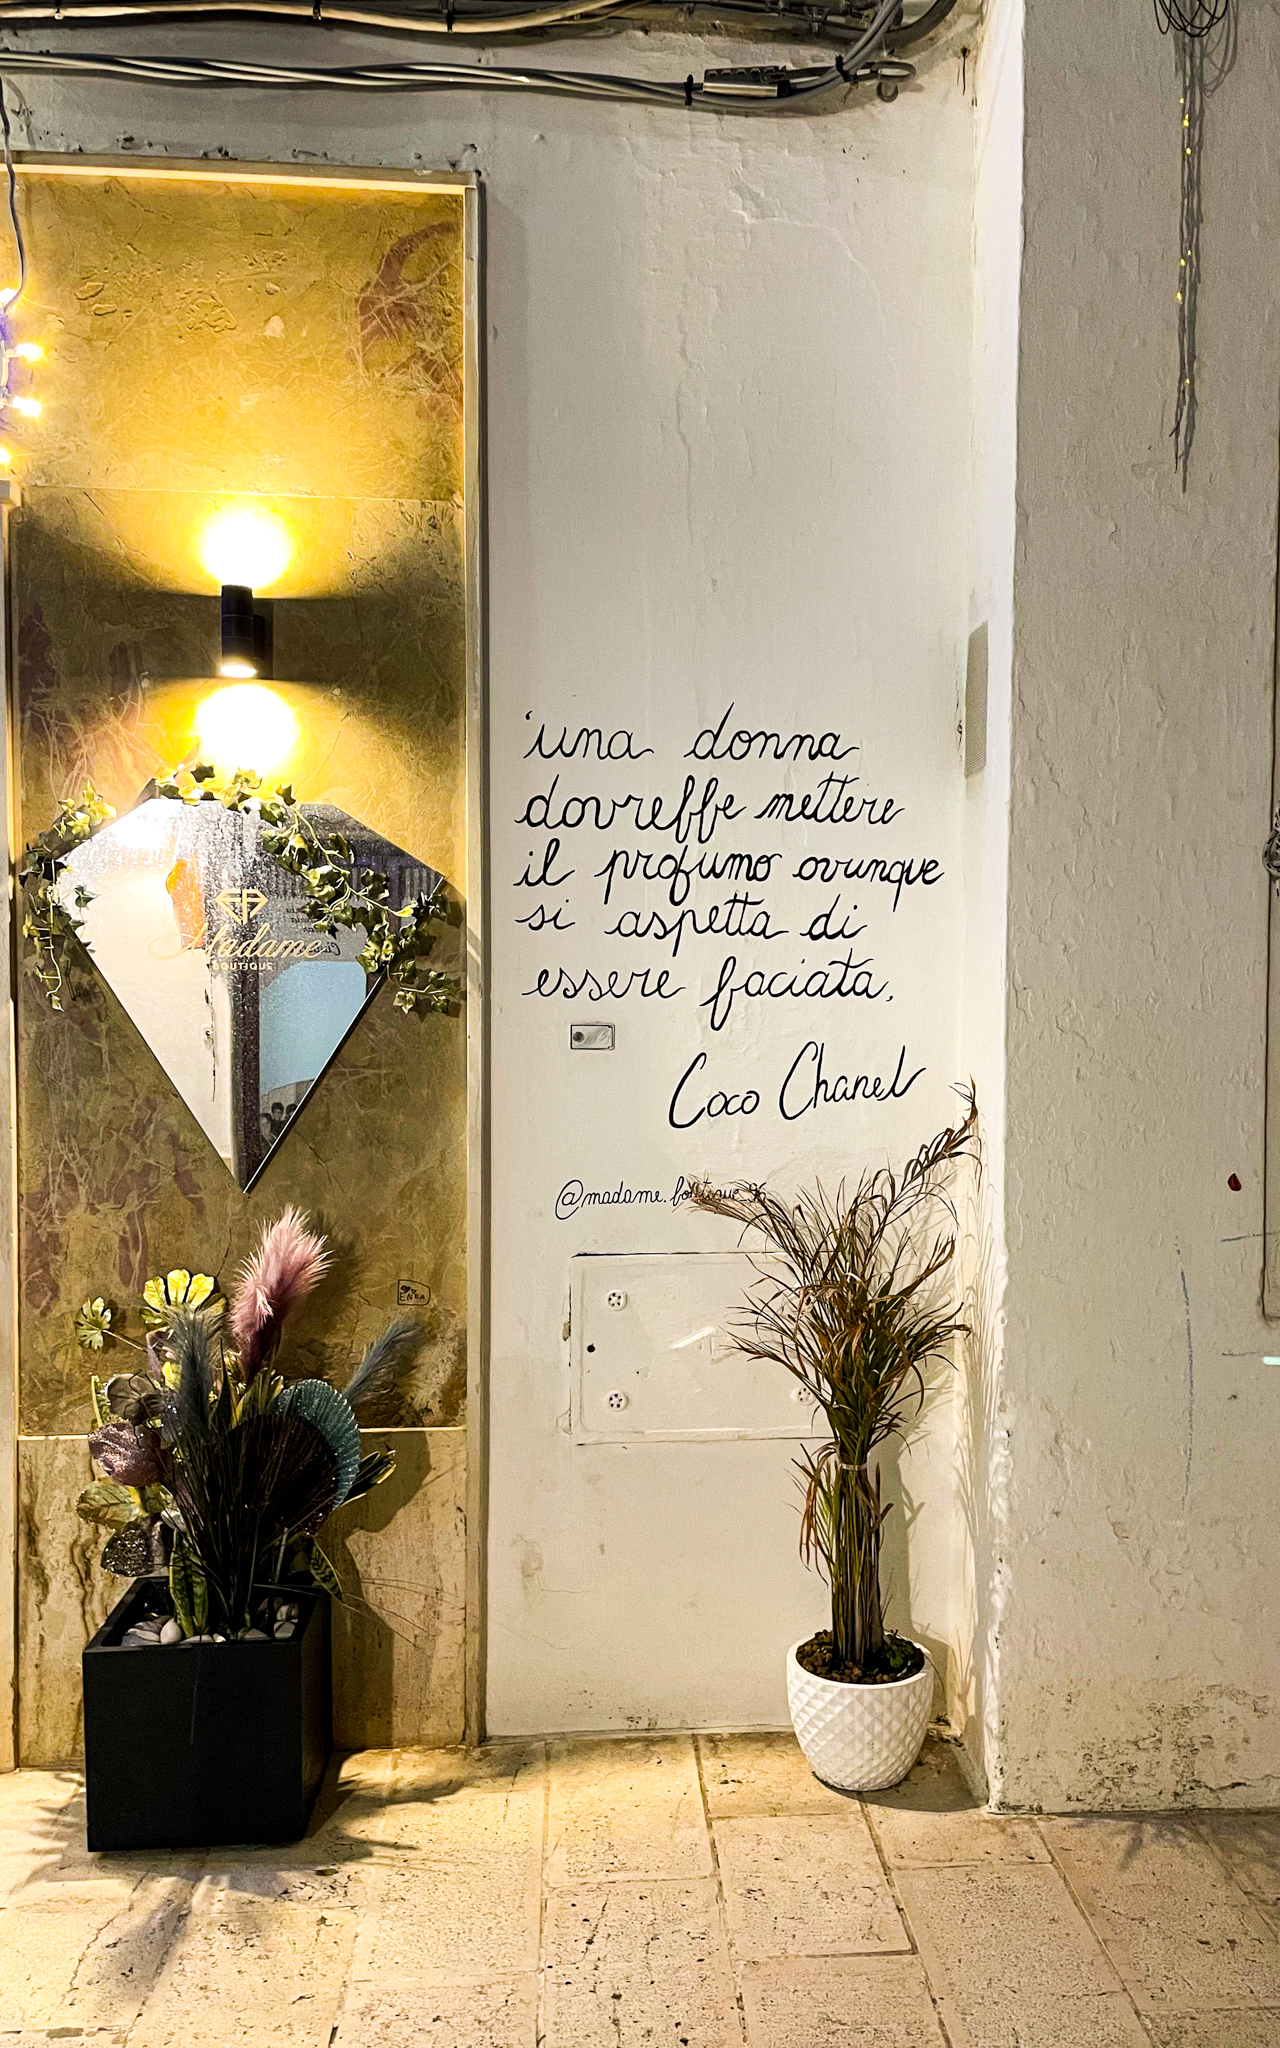 Madame
BOUTIQUE
‘una donna
dovreffe mettere
il profumo ovunque
si aspetta di
essere faciata.
Coco Chanel
@madame.boutique_96
ENEA